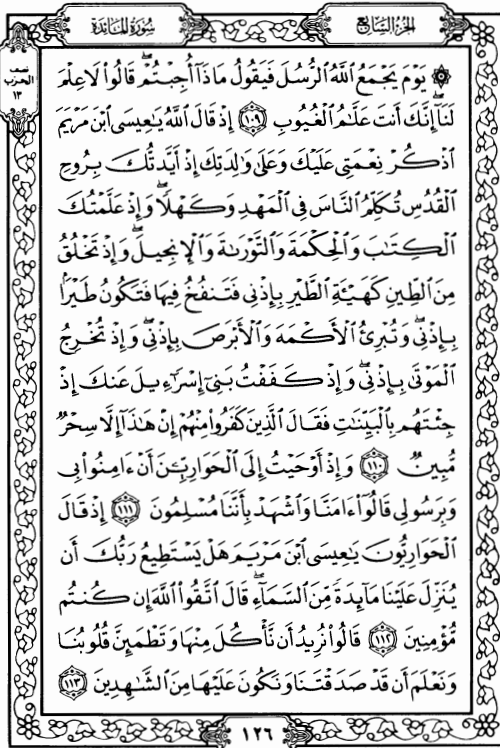 سُورَةُ المَائدَة
الجُزْءُ السَّابِعُ
نصف
الحزب
١٣
۞ يَوْمَ يَجْمَعُ ٱللَّهُ ٱلرُّسُلَ فَيَقُولُ مَاذَآ أُجِبْتُمْۖ قَالُوا۟ لَا عِلْمَ
لَنَآۖ إِنَّكَ أَنتَ عَلَّٰمُ ٱلْغُيُوبِ ١٠٩ إِذْ قَالَ ٱللَّهُ يَٰعِيسَى ٱبْنَ مَرْيَمَ
ٱذْكُرْ نِعْمَتِى عَلَيْكَ وَعَلَىٰ وَٰلِدَتِكَ إِذْ أَيَّدتُّكَ بِرُوحِ
ٱلْقُدُسِ تُكَلِّمُ ٱلنَّاسَ فِى ٱلْمَهْدِ وَكَهْلًاۖ وَإِذْ عَلَّمْتُكَ
ٱلْكِتَٰبَ وَٱلْحِكْمَةَ وَٱلتَّوْرَىٰةَ وَٱلْإِنجِيلَۖ وَإِذْ تَخْلُقُ
مِنَ ٱلطِّينِ كَهَيْـَٔةِ ٱلطَّيْرِ بِإِذْنِى فَتَنفُخُ فِيهَا فَتَكُونُ طَيْرًۢا
بِإِذْنِىۖ وَتُبْرِئُ ٱلْأَكْمَهَ وَٱلْأَبْرَصَ بِإِذْنِىۖ وَإِذْ تُخْرِجُ
ٱلْمَوْتَىٰ بِإِذْنِىۖ وَإِذْ كَفَفْتُ بَنِىٓ إِسْرَٰٓءِيلَ عَنكَ إِذْ
جِئْتَهُم بِٱلْبَيِّنَٰتِ فَقَالَ ٱلَّذِينَ كَفَرُوا۟ مِنْهُمْ إِنْ هَٰذَآ إِلَّا سِحْرٌ
مُّبِينٌ ١١٠ وَإِذْ أَوْحَيْتُ إِلَى ٱلْحَوَارِيِّـۧنَ أَنْ ءَامِنُوا۟ بِى
وَبِرَسُولِى قَالُوٓا۟ ءَامَنَّا وَٱشْهَدْ بِأَنَّنَا مُسْلِمُونَ ١١١ إِذْ قَالَ
ٱلْحَوَارِيُّونَ يَٰعِيسَى ٱبْنَ مَرْيَمَ هَلْ يَسْتَطِيعُ رَبُّكَ أَن
يُنَزِّلَ عَلَيْنَا مَآئِدَةً مِّنَ ٱلسَّمَآءِۖ قَالَ ٱتَّقُوا۟ ٱللَّهَ إِن كُنتُم
مُّؤْمِنِينَ ١١٢ قَالُوا۟ نُرِيدُ أَن نَّأْكُلَ مِنْهَا وَتَطْمَئِنَّ قُلُوبُنَا
وَنَعْلَمَ أَن قَدْ صَدَقْتَنَا وَنَكُونَ عَلَيْهَا مِنَ ٱلشَّٰهِدِينَ ١١٣
١٢٦